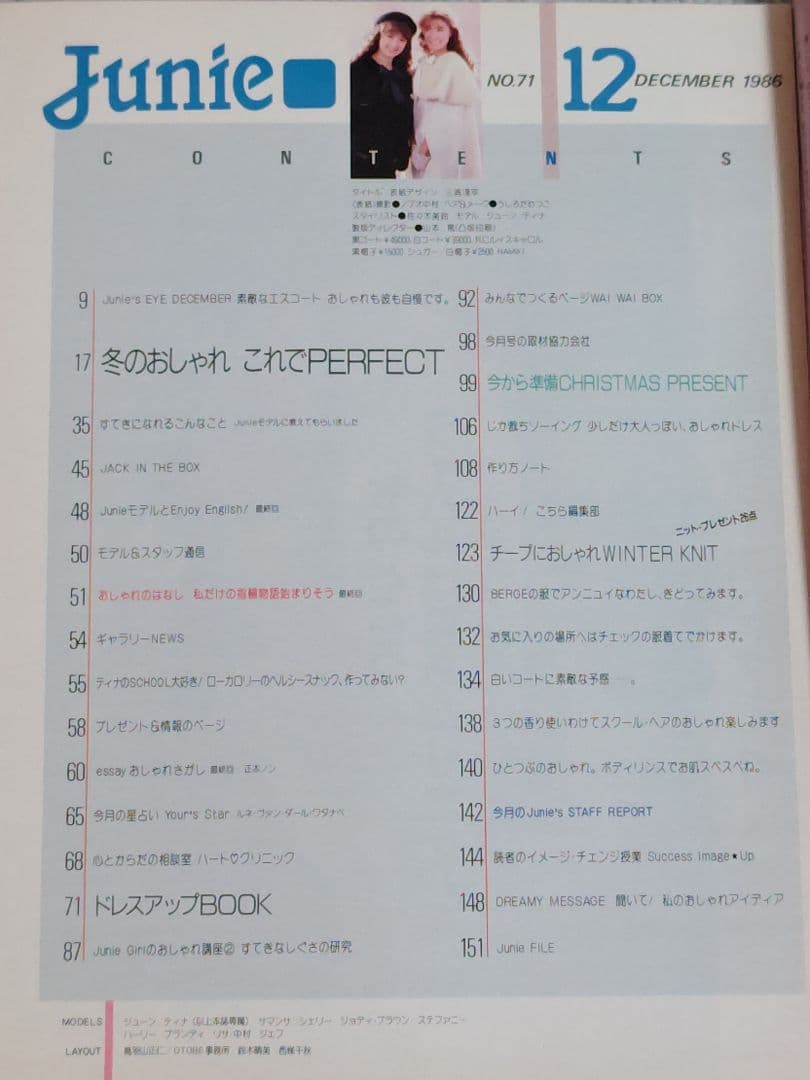 Junie
NO.71
12 DECEMBER 1986
CONTENTS
タイトル 表紙デザイン
スタイリスト●佐々木美鈴 モデル ジューン ティナ
黒コート¥49000、白コート¥39000、共にルイスキャロル
黒帽子¥15000 シュガー 白帽子¥2500
9 Junie's EYE DECEMBER 素敵なエスコート おしゃれも彼も自慢です。
17 冬のおしゃれ これでPERFECT
35 すてきになれるこんなこと Junieモデルに教えてもらいました
45 JACK IN THE BOX
48 JunieモデルとEnjoy English! 最終回
50 モデル&スタッフ通信
51 おしゃれのはなし 私だけの指輪物語始まりそう 最終回
54 ギャラリーNEWS
55 ティナのSCHOOL大好き! ローカロリーのヘルシースナック、作ってみない?
58 プレゼント&情報のページ
60 essay おしゃれさがし 最終回 正本ノン
65 今月の星占い Your's Star ルネ・ヴァン・ダール・ワタナベ
68 心とからだの相談室 ハート♡クリニック
71 ドレスアップBOOK
87 Junie Girlのおしゃれ講座② すてきなしぐさの研究
92 みんなでつくるページWAI WAI BOX
98 今月号の取材協力会社
99 今から準備CHRISTMAS PRESENT
106 じか裁ちソーイング 少しだけ大人っぽい、おしゃれドレス
108 作り方ノート
122 ハーイ! こちら編集部
ニット・プレゼント26点
123 チープにおしゃれWINTER KNIT
130 BERGEの服でアンニュイなわたし、きどってみます。
132 お気に入りの場所へはチェックの服着てでかけます。
134 白いコートに素敵な予感……。
138 3つの香り使いわけてスクール・ヘアのおしゃれ楽しみます
140 ひとつぶのおしゃれ。ボディリンスでお肌スベスベね。
142 今月のJunie's STAFF REPORT
144 読者のイメージ・チェンジ授業 Success Image★Up
148 DREAMY MESSAGE 聞いて! 私のおしゃれアイディア
151 Junie FILE
MODELS ジューン ティナ（以上本誌専属） サマンサ シェリー ジョディ・ブラウン ステファニー
ハーリー ブランディ リサ・中村 ジェフ
LAYOUT 鳥羽山正仁/OTOBE事務所 鈴木晴美 西様千秋